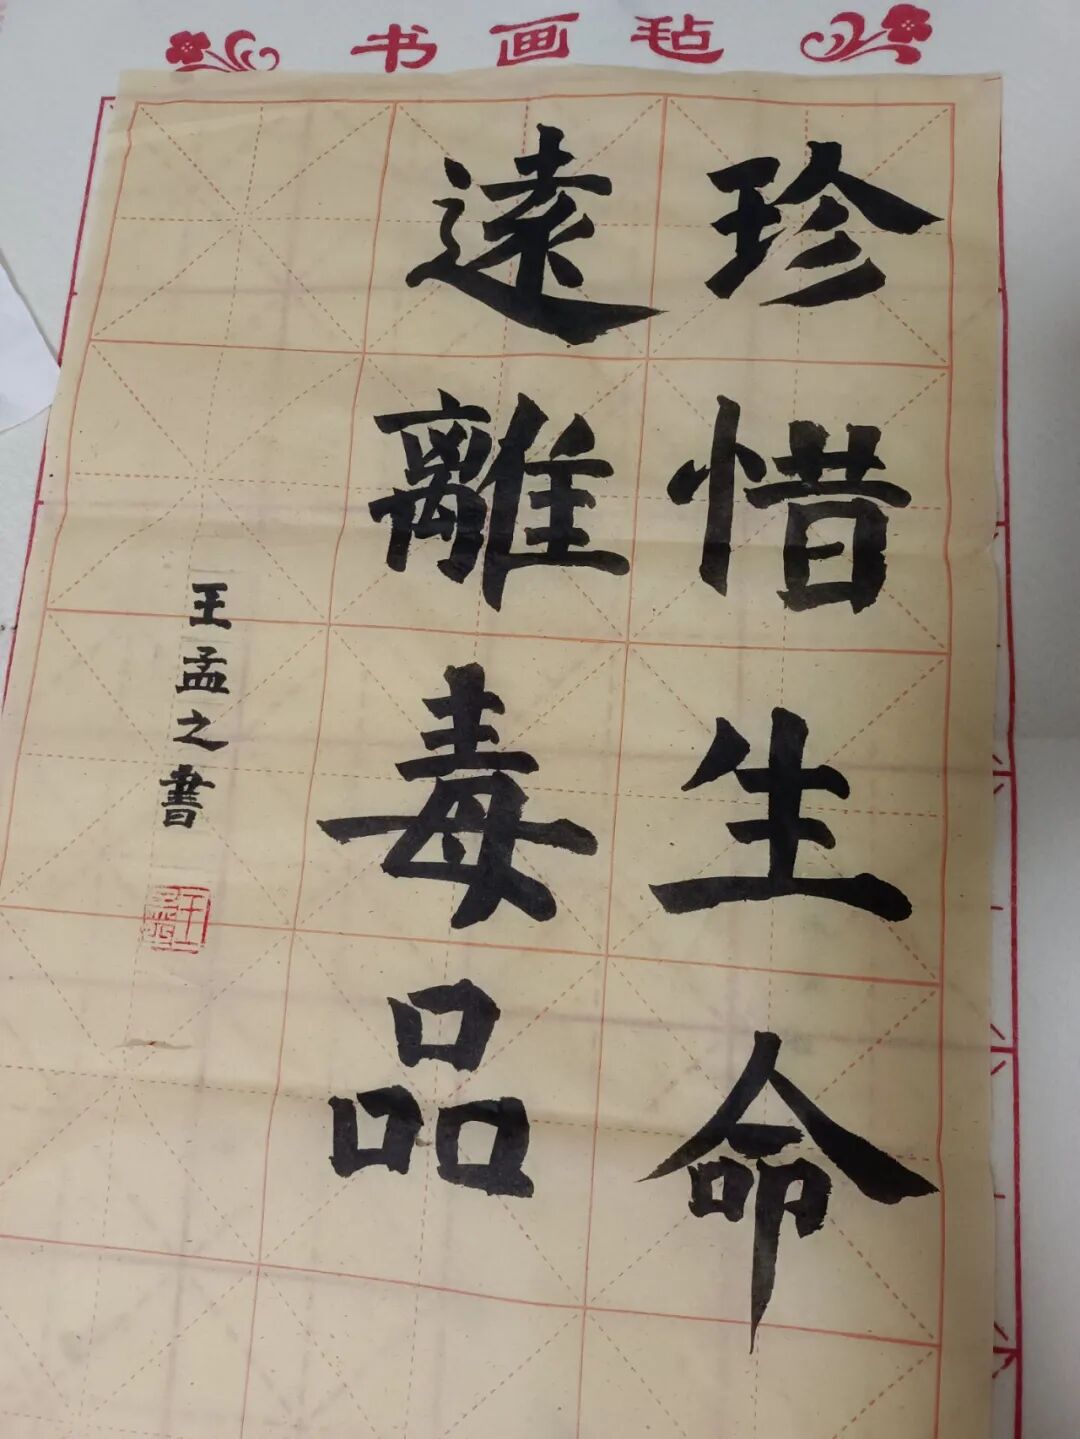 书画毡
珍惜生命
遠離毒品
王孟之書